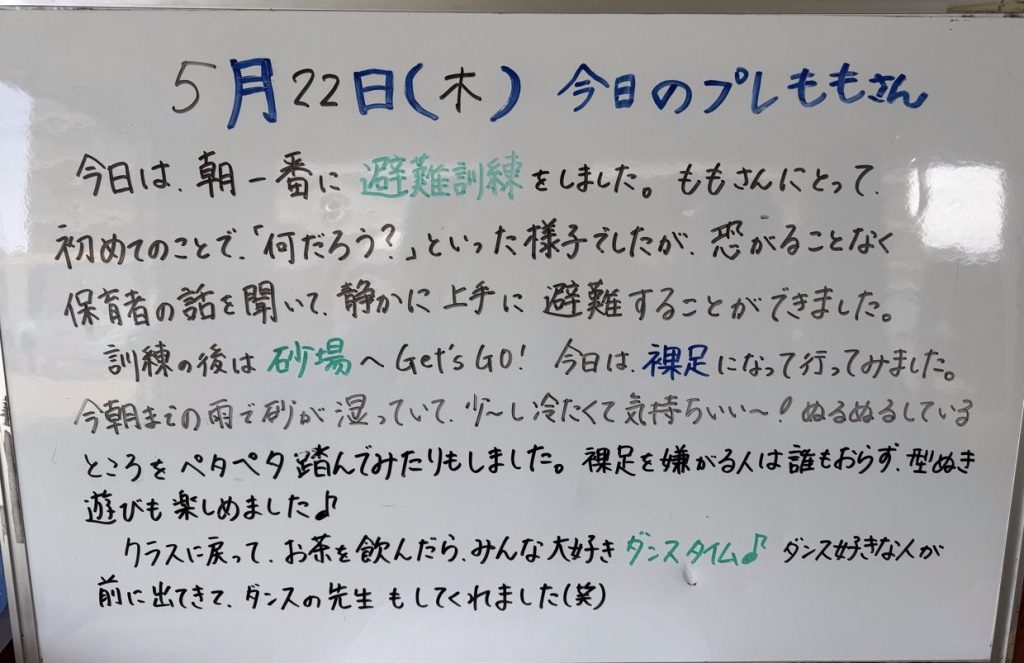 5月22日(木) 今日のプレももさん
今日は、朝一番に避難訓練をしました。ももさんにとって、
初めてのことで、「何だろう?」といった様子でしたが、恐がることなく
保育者の話を聞いて、静かに上手に避難することができました。
訓練の後は砂場へGet's GO! 今日は、裸足になって行ってみました。
今朝までの雨で砂が湿っていて、少〜し冷たくて気持ちいい〜!ぬるぬるしている
ところをペタペタ踏んでみたりもしました。裸足を嫌がる人は誰もおらず、型ぬき
遊びも楽しめました♪
クラスに戻って、お茶を飲んだら、みんな大好きダンスタイム♪ ダンス好きな人が
前に出てきて、ダンスの先生もしてくれました(笑)